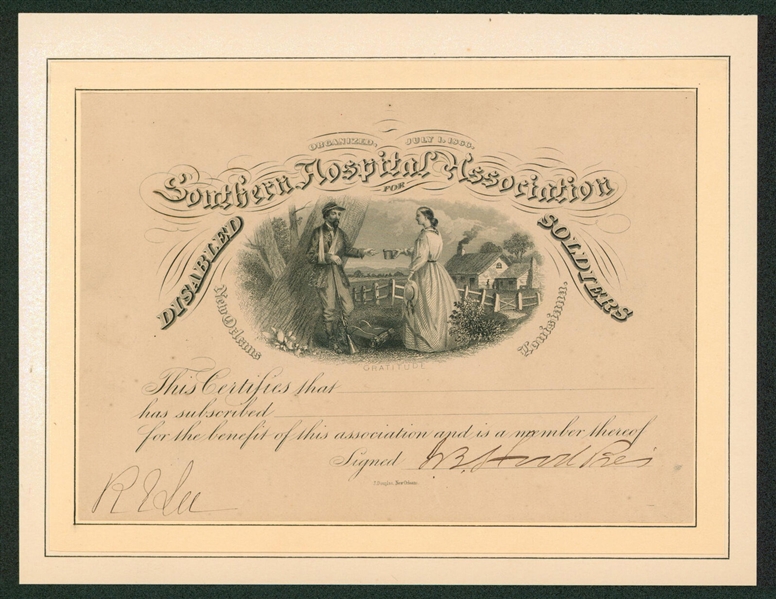 ORGANIZED, JULY 1, 1866.
Southern Hospital Association
FOR
DISABLED SOLDIERS
New Orleans Louisiana.
GRATITUDE
This Certifies that
has subscribed
for the benefit of this association and is a member thereof
Signed J B Hood Pres
R E Lee
New Orleans.